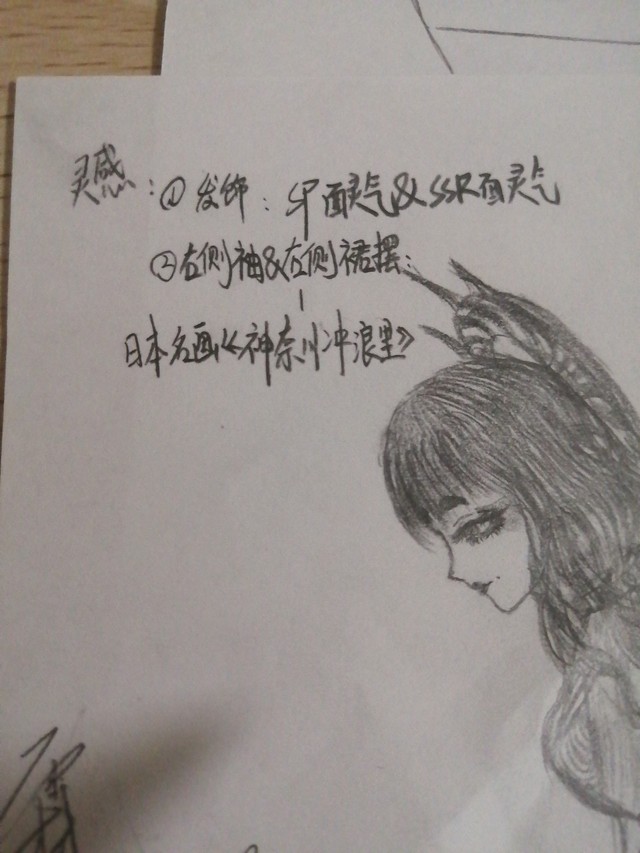 灵感:①发饰:SP面灵气&SSR面灵气
②右侧袖&右侧裙摆:
日本名画《神奈川冲浪里》